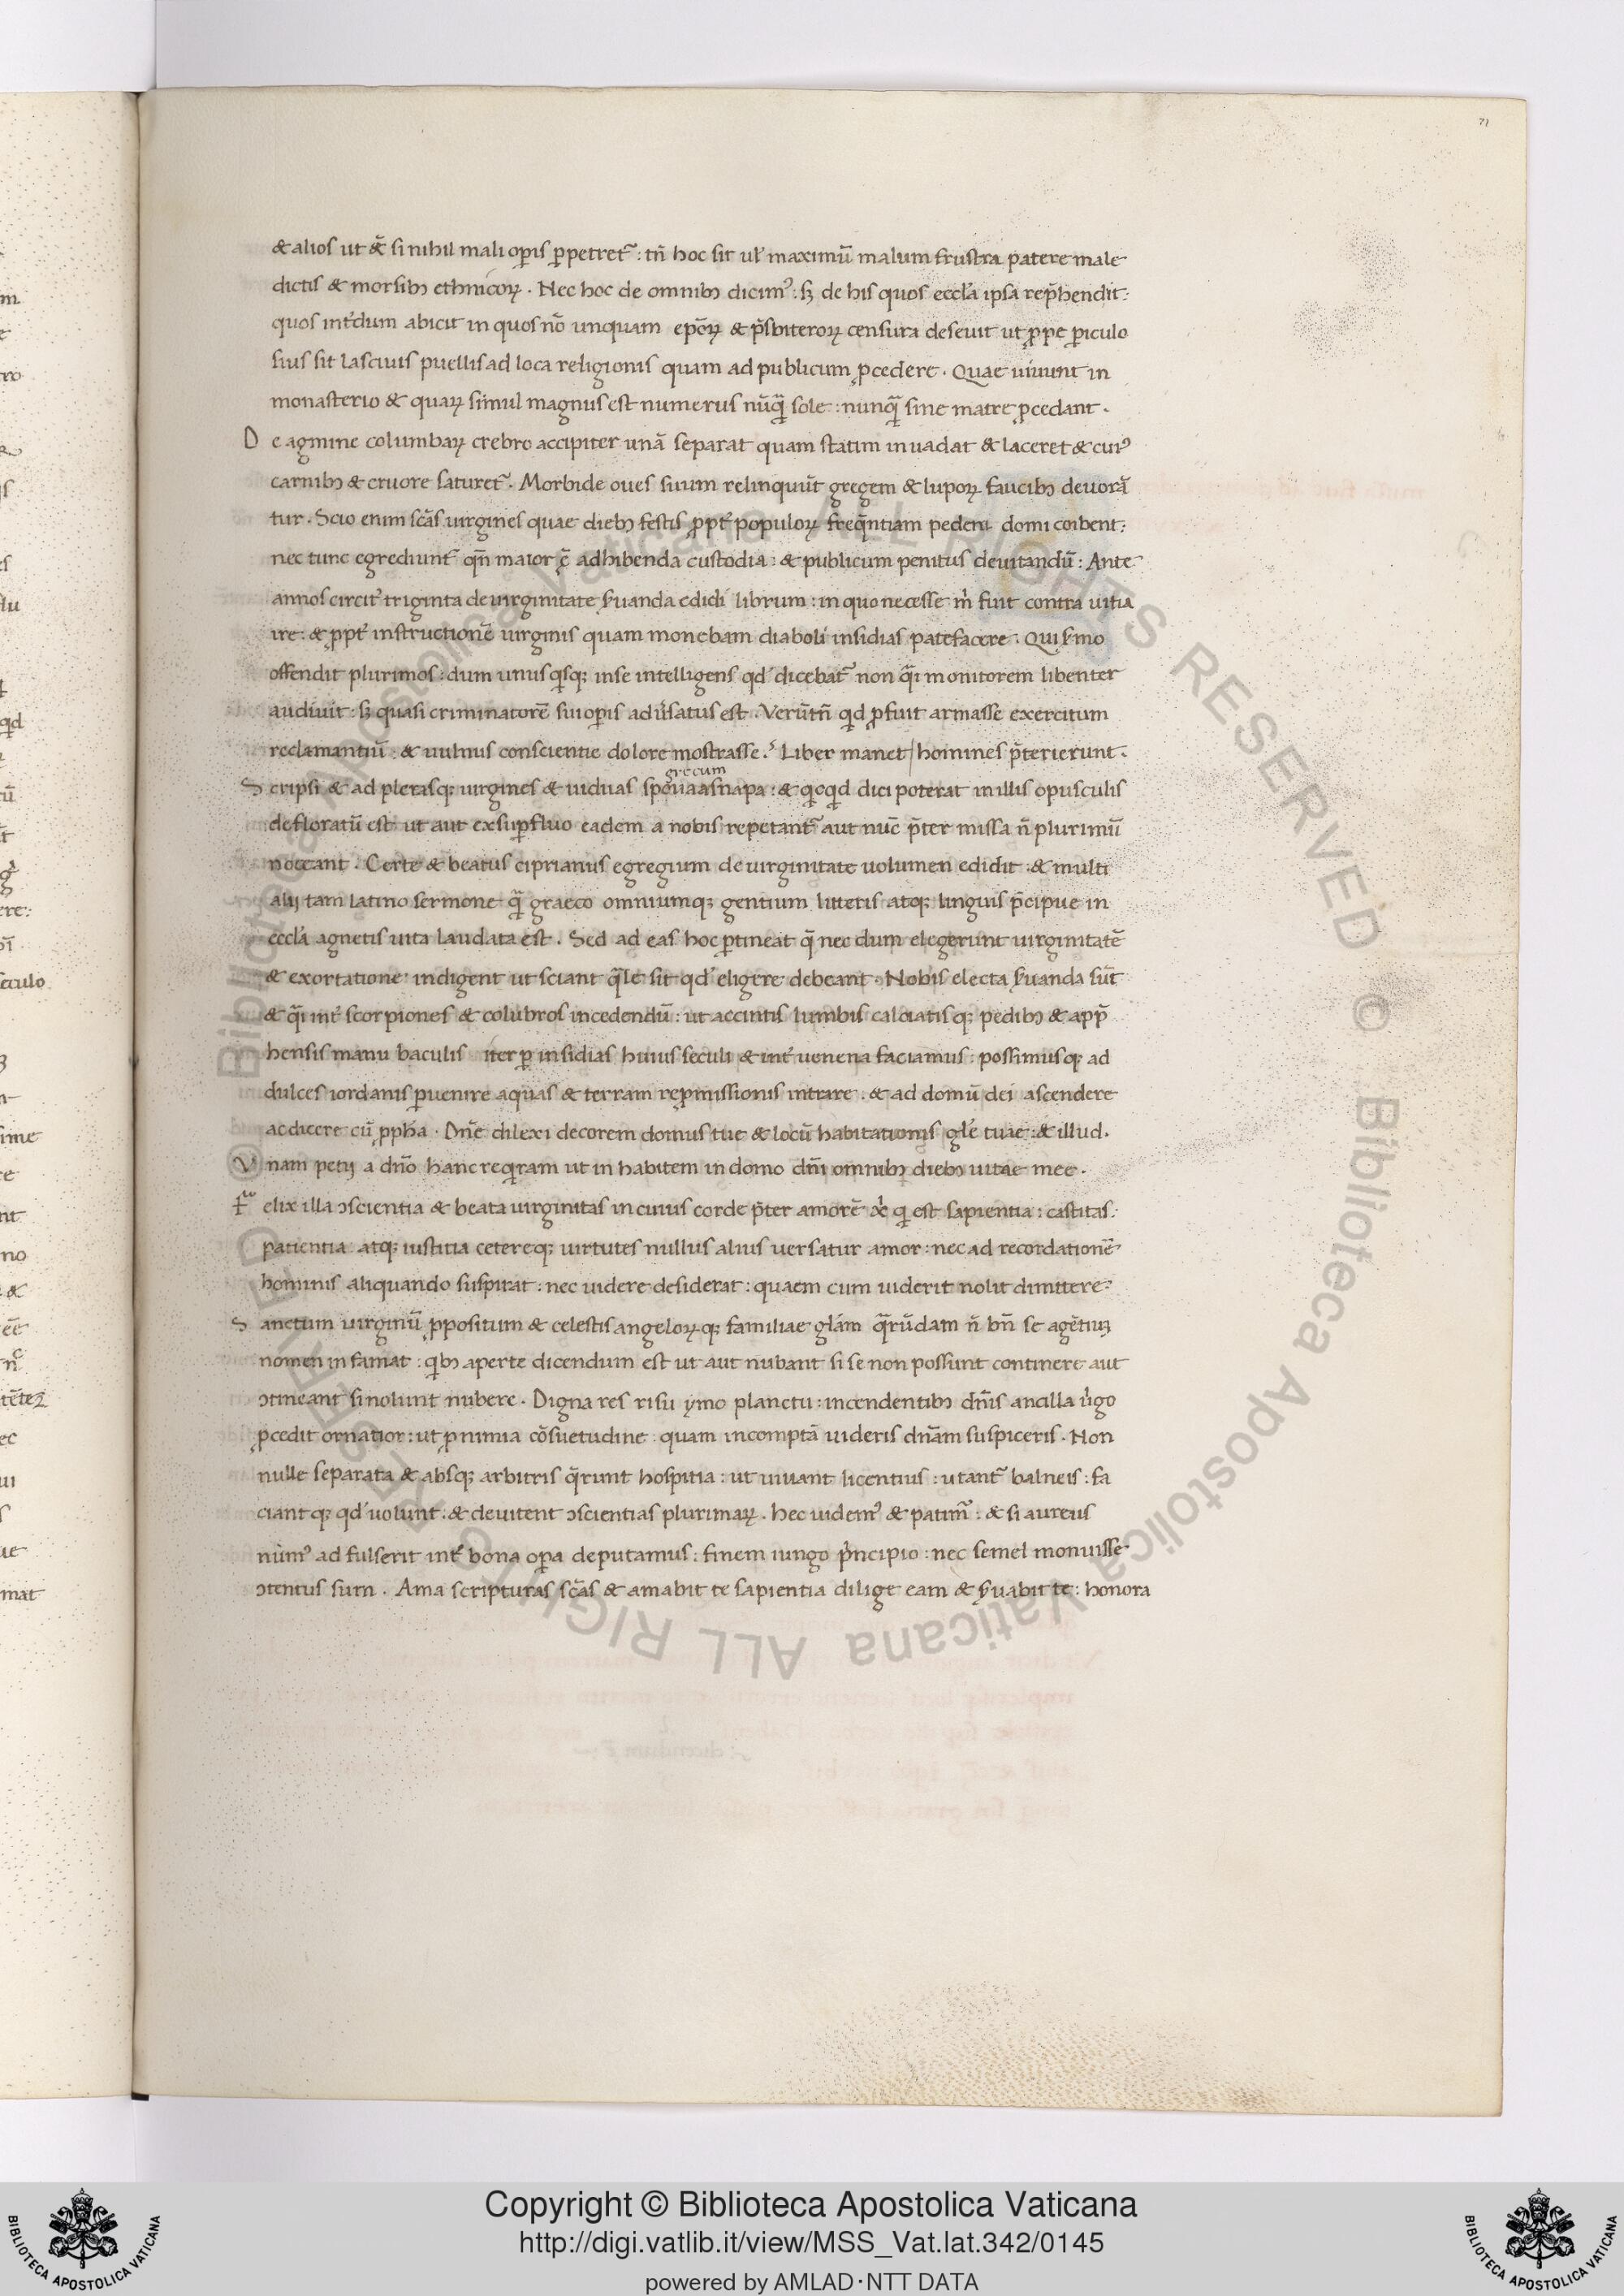 71
& alios ut &̃ si nihil mali op̲is p̲petret᷑ : tn̄ hoc sit ul̛ maximū malum frustra patere male
dictis & morsib; ethnicoꝝ . Nec hoc de omnib; dicimꝰ : sꝫ de his quos eccl̄a ipsa rep̄hendit :
quos int̛dum abicit in quos nō unquam ep̄oꝝ & p̄sbiteroꝝ censura deseuit ut ꝓpe ꝑiculo
sius sit lasciuis puellis ad loca religionis quam ad publicum ꝓcedere . Quae uiuunt in
monasterio & quaꝝ simul magnus est numerus nūq̄ sole : nunq̄ sine matre ꝓcedant .
D e agmine columbaꝝ crebro accipiter unā separat quam statim inuadat & laceret & cuiꝰ
carnib; & cruore saturet᷑ . Morbide oues suum relinquūt gregem & lupoꝝ faucib; deuorā
tur . Scio enim sc̄as uirgines quae dieb; festis ꝓpt̛ populoꝝ freq̄ntiam pedem domi coibent :
nec tunc egrediunt᷑ qn̄ maior ē adhibenda custodia : & publicum penitus deuitandū : Ante
annos circit̛ triginta de uirginitate ẜuanda edidi librum : in quo necesse m̄ fuit contra uitia
ire : & ꝓpt̛ instructionē uirginis quam monebam diaboli insidias patefacere . Qui ẜmo
offendit plurimos : dum unusqisqꝫ inse intelligens qd̛ dicebat᷑ non q̄i monitorem libenter
audiuit : sꝫ quasi criminatorē sui op̲is adưsatus est . Verūtn̄ qid ꝓfuit armasse exercitum
reclamantiū : & uulnus conscientie dolore mostrasse . Liber manet | homines p̄terierunt .
grecum
S cripsi & ad plerasqꝫ uirgines & uiduas spouaasnapa : & qicqid dici poterat in illis opusculis
defloratū est ut aut exsup̲fluo eadem a nobis repetant᷑ aut nūc p̄ter missa n̄ plurimū
noceant . Certe & beatus ciprianus egregium de uirginitate uolumen edidit : & multi
alij tam latino sermone q̄ graeco omniumqꝫ gentium litteris atqꝫ linguis p̄cipue in
eccl̄a agnetis uita laudata est . Sed ad eas hoc ꝑtineat q̄ nec dum elegerunt uirginitatē
& exortatione indigent ut sciant q̄le sit qd̛ eligere debeant . Nobis electa ẜuanda sūt
& q̄i int̛ scorpiones & colubros incedendū : ut accintis lumbis calciatisqꝫ pedib; & app̄
hensis manu baculis iter ꝑ insidias huius seculi & int̛ uenena faciamus : possimusqꝫ ad
dulces iordanis ꝑuenire aquas & terram reꝓmissionis intrare . & ad domū dei ascendere
ac dicere cū ꝓph̄a . Dn̄e dilexi decorem domus tue & locū habitationis gl̄e tuae : & illud .
V nam petij a dn̄o hanc reqiram ut in habitem in domo dn̄i omnib; dieb; uitae mee .
F elix illa ↄscientia & beata uirginitas in cuius corde p̄ter amorē xp̄i q̄ est sapientia : castitas :
patientia atqꝫ iustitia cetereqꝫ uirtutes nullus alius uersatur amor : nec ad recordationē
hominis aliquando suspirat : nec uidere desiderat : quaem cum uiderit nolit dimittere :
S anctum uirginū ꝓpositum & celestis angeloꝝqꝫ familiae glām q̄rūdam n̄ bn̄ se agētiuꝫ
nomen in famat : qib; aperte dicendum est ut aut nubant si se non possunt continere aut
ↄtineant si nolunt nubere . Digna res risu ymo planctu : incendentib; dn̄is ancilla ưgo
ꝓcedit ornatior : ut ꝓ nimia cōsuetudine quam incomptā uideris dn̄am suspiceris . Non
nulle separata & absqꝫ arbitris q̄runt hospitia : ut uiuant licentius : utant᷑ balneis : fa
ciantqꝫ qd̛ uolunt : & deuitent ↄscientias plurimaꝝ . hec uidemꝰ & patim᷑ : & si aureus
nūmꝰ ad fulserit int̛ bona op̲a deputamus : finem iungo p̛ncipio : nec semel monuisse
ↄtentus sum . Ama scripturas sc̄as & amabit te sapientia dilige eam & ẜuabit te : honora
Copyright © Biblioteca Apostolica Vaticana
http://digi.vatlib.it/view/MSS_Vat.lat.342/0145
powered by AMLAD·NTT DATA
BIBLIOTECA APOSTOLICA VATICANA
BIBLIOTECA APOSTOLICA VATICANA
© Biblioteca Apostolica Vaticana ALL RIGHTS RESERVED © Biblioteca Apostolica Vaticana ALL RIGHTS RESERVED